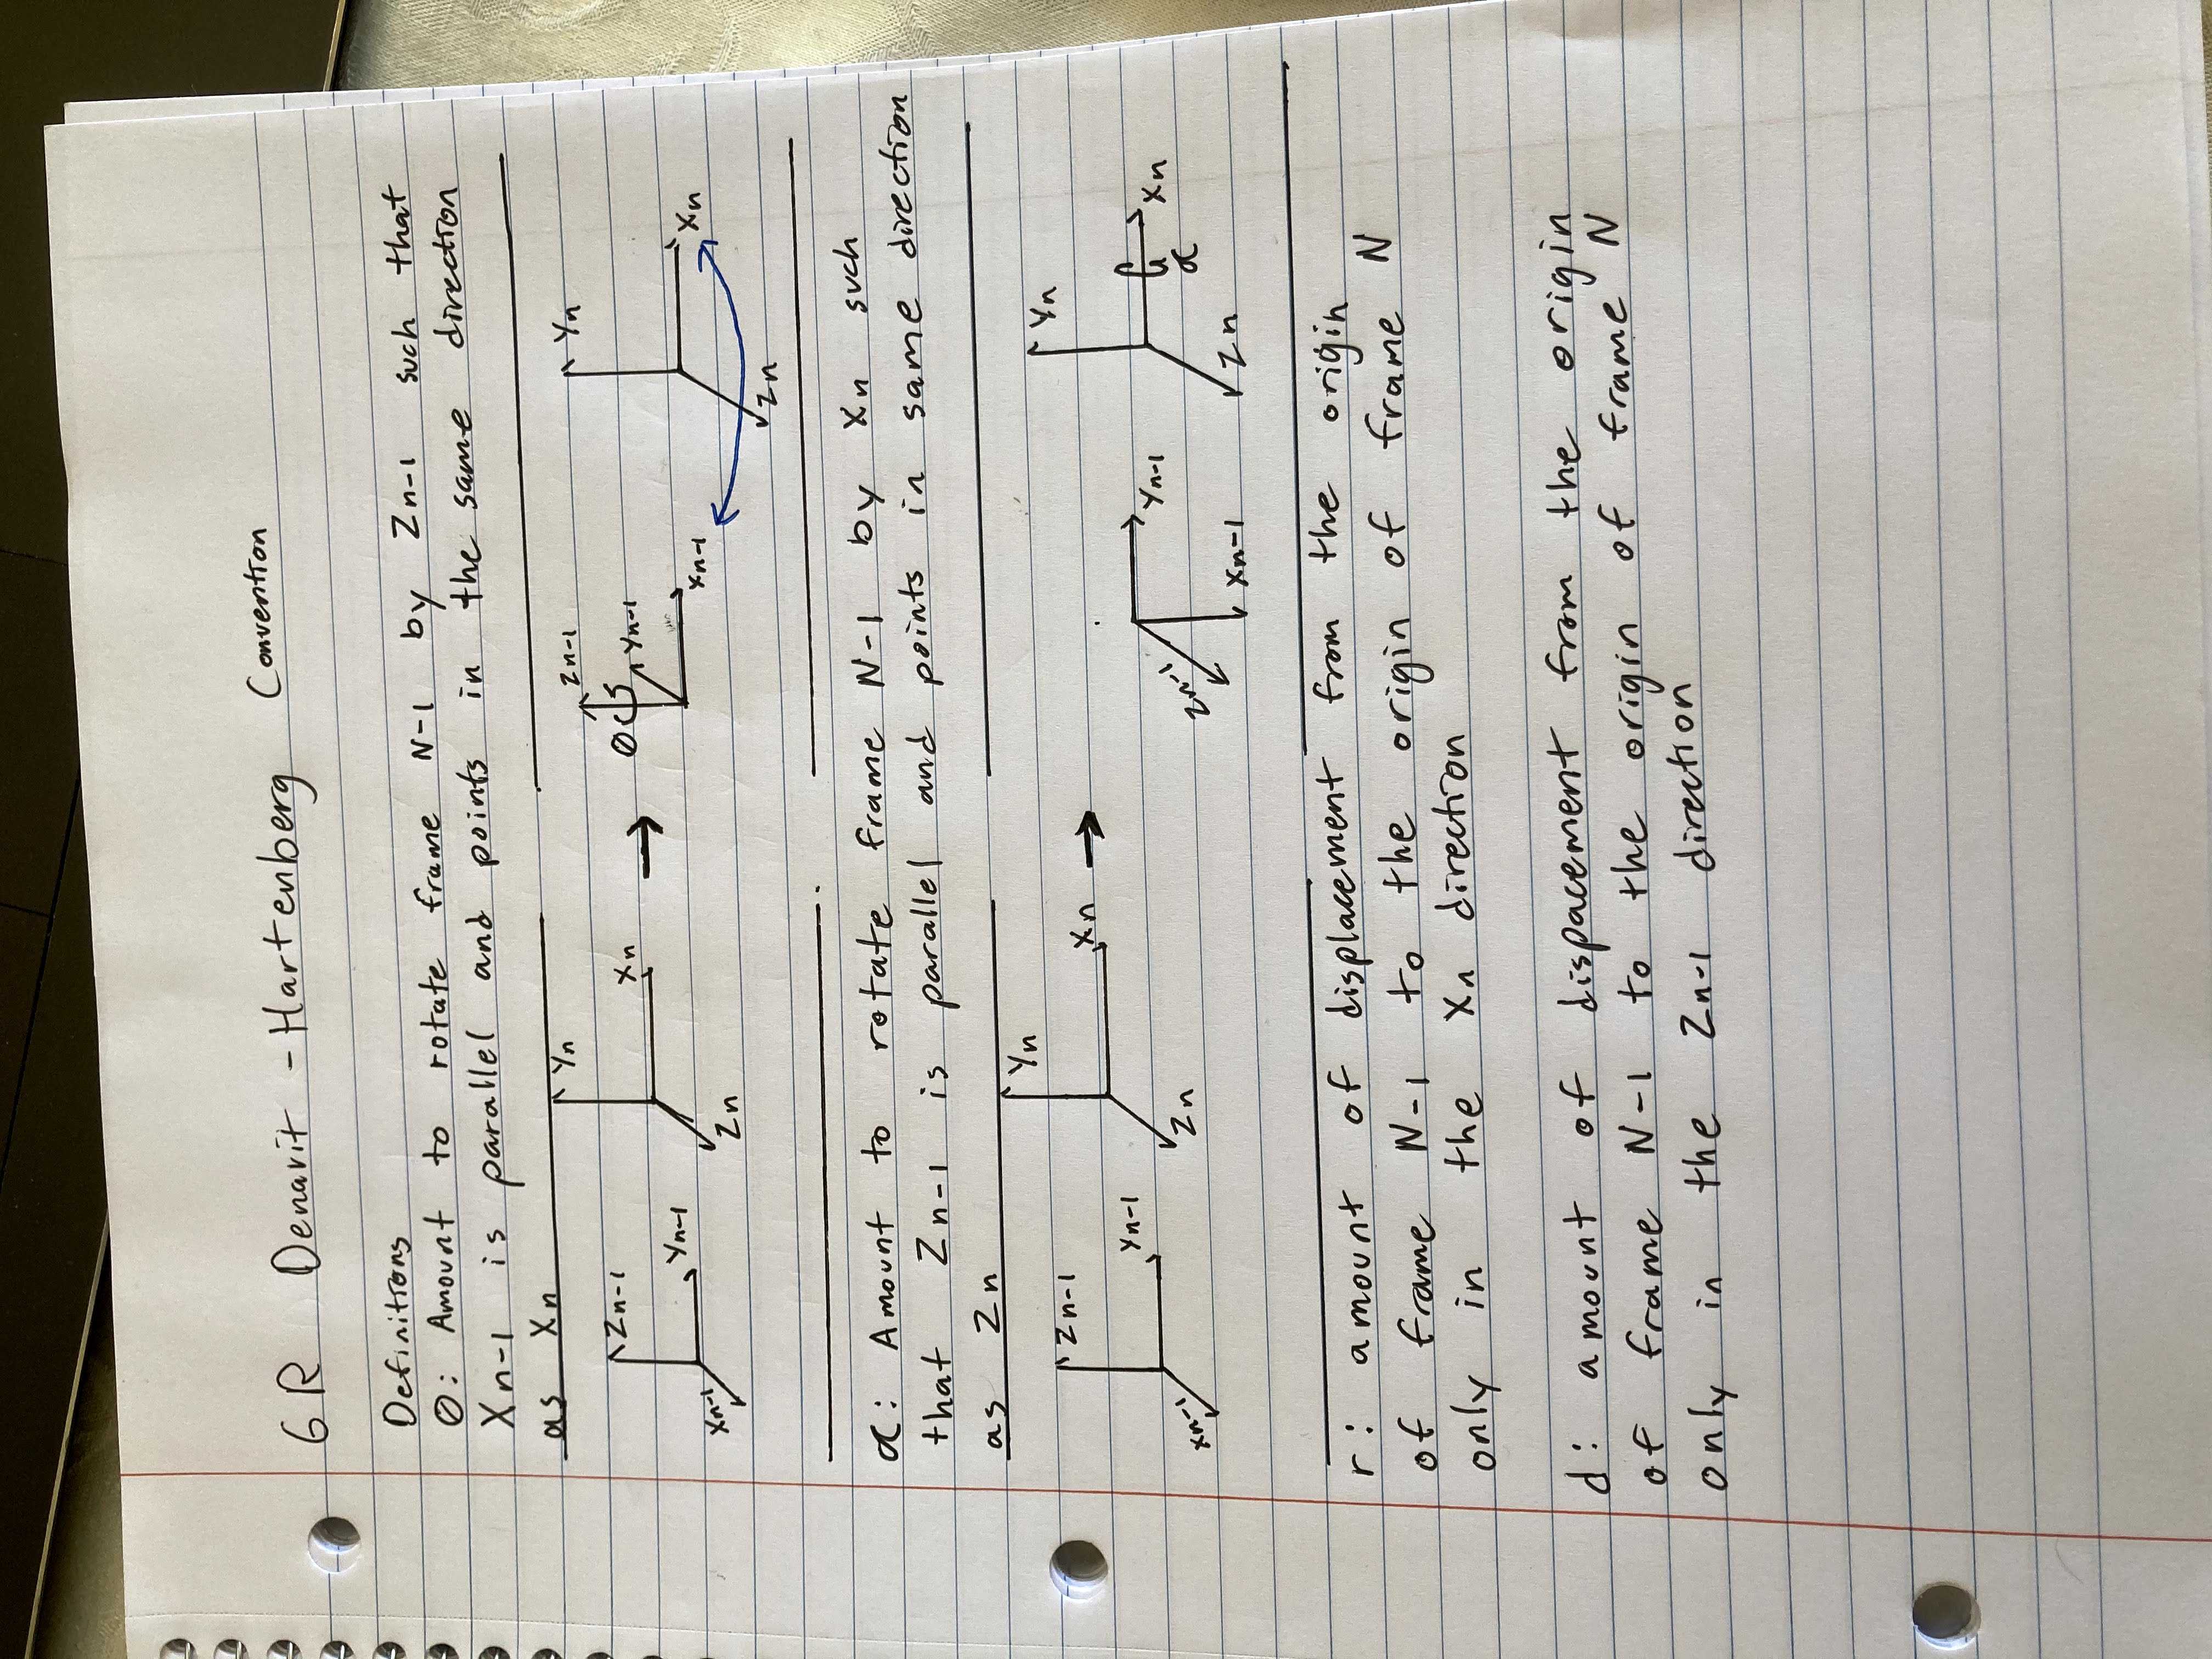 6R Denavit - Hartenberg Convention
Definitions
θ: Amount to rotate frame N-1 by Zn-1 such that
Xn-1 is parallel and points in the same direction
as Xn
Zn-1
Yn-1
Xn-1
Yn
Xn
Zn
→
Zn-1
θ
Yn-1
Xn-1
Yn
Xn
Zn
α: Amount to rotate frame N-1 by Xn such
that Zn-1 is parallel and points in same direction
as Zn
Zn-1
Yn-1
Xn-1
Yn
Xn
Zn
→
Yn-1
Zn-1
Xn-1
Yn
Xn
α
Zn
r: amount of displacement from the origin
of frame N-1 to the origin of frame N
only in the Xn direction
d: amount of dispacement from the origin
of frame N-1 to the origin of frame N
only in the Zn-1 direction